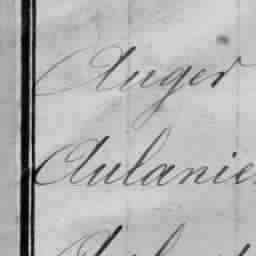 Auger
Aulanie